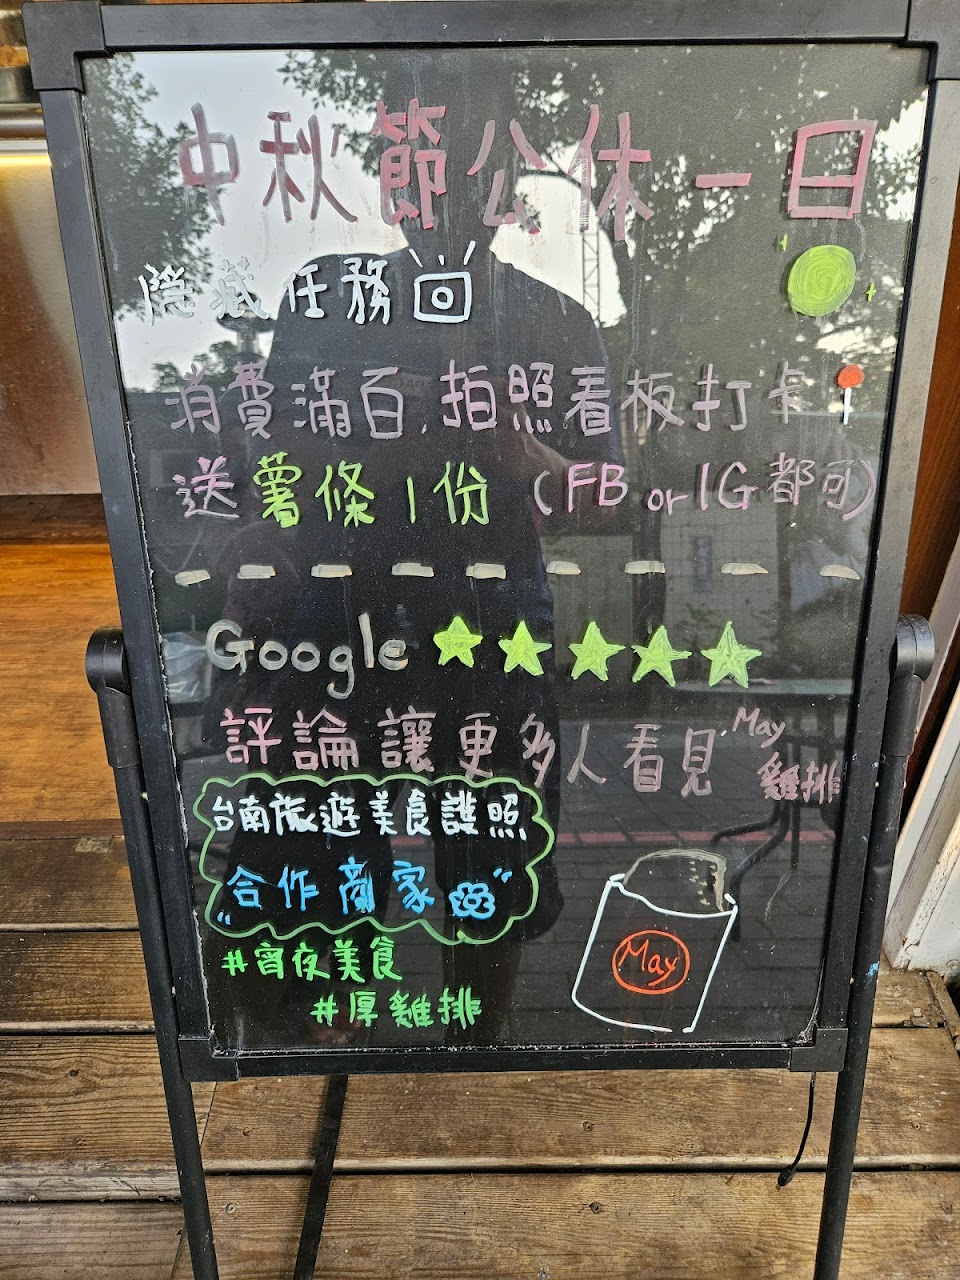 中秋節公休一日
隱藏任務
消費滿百,拍照看板打卡
送薯條1份(FB or IG都可)
Google ★★★★★
評論讓更多人看見 May
雞排
台南旅遊美食護照
"合作商家"
#宵夜美食
#厚雞排
May